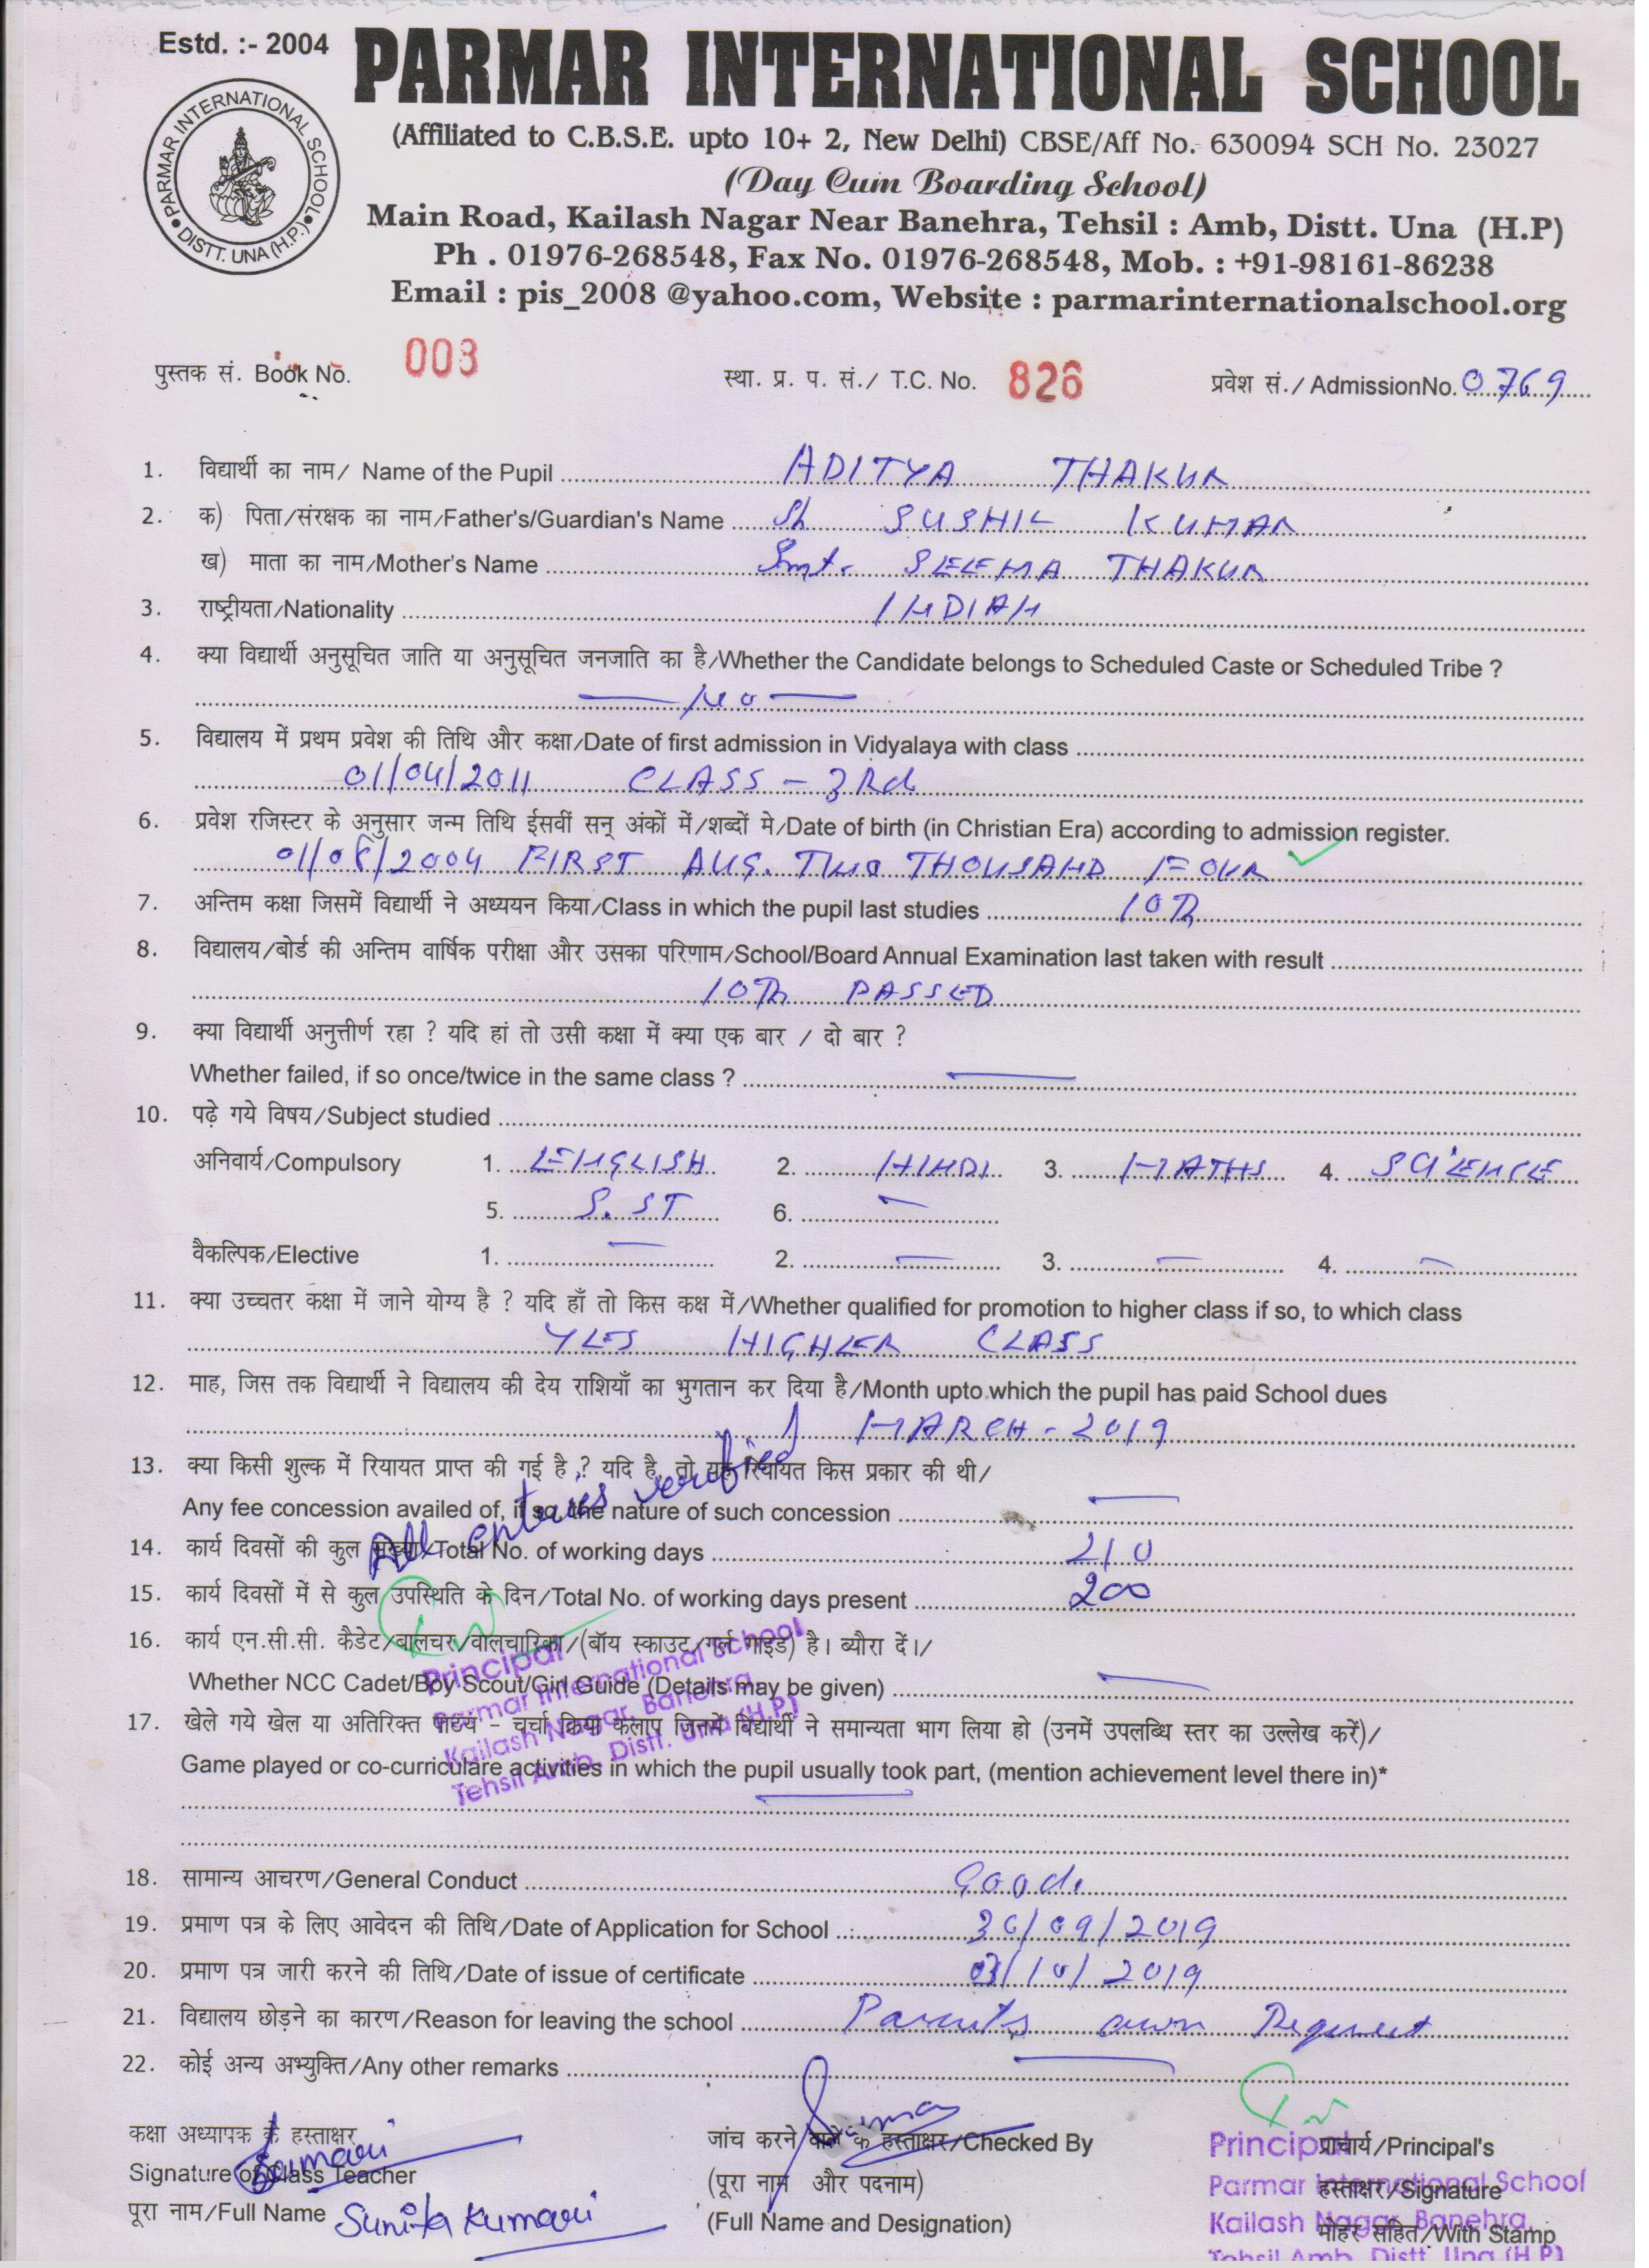 Estd. :- 2004
PARMAR INTERNATIONAL SCHOOL
PARMAR INTERNATIONAL SCHOOL
DISTT. UNA (H.P.)
(Affiliated to C.B.S.E. upto 10+ 2, New Delhi) CBSE/Aff No.- 630094 SCH No. 23027
(Day Cum Boarding School)
Main Road, Kailash Nagar Near Banehra, Tehsil : Amb, Distt. Una (H.P)
Ph . 01976-268548, Fax No. 01976-268548, Mob. : +91-98161-86238
Email : pis_2008 @yahoo.com, Website : parmarinternationalschool.org
पुस्तक सं. Book No. 003 स्था. प्र. प. सं./ T.C. No. 826 प्रवेश सं./ AdmissionNo. 0769
1. विद्यार्थी का नाम/ Name of the Pupil ADITYA THAKUR
2. क) पिता/संरक्षक का नाम/Father's/Guardian's Name Sh SUSHIL KUMAR
ख) माता का नाम/Mother's Name Smt. SEEMA THAKUR
3. राष्ट्रीयता/Nationality INDIAN
4. क्या विद्यार्थी अनुसूचित जाति या अनुसूचित जनजाति का है/Whether the Candidate belongs to Scheduled Caste or Scheduled Tribe ?
— No —
5. विद्यालय में प्रथम प्रवेश की तिथि और कक्षा/Date of first admission in Vidyalaya with class
01/04/2011 CLASS – 3Rd
6. प्रवेश रजिस्टर के अनुसार जन्म तिथि ईसवीं सन् अंकों में/शब्दों मे/Date of birth (in Christian Era) according to admission register.
01/08/2004 FIRST AUG. TWO THOUSAND FOUR
7. अन्तिम कक्षा जिसमें विद्यार्थी ने अध्ययन किया/Class in which the pupil last studies 10Th
8. विद्यालय/बोर्ड की अन्तिम वार्षिक परीक्षा और उसका परिणाम/School/Board Annual Examination last taken with result
10Th PASSED
9. क्या विद्यार्थी अनुत्तीर्ण रहा ? यदि हां तो उसी कक्षा में क्या एक बार / दो बार ?
Whether failed, if so once/twice in the same class ? —
10. पढ़े गये विषय/Subject studied
अनिवार्य/Compulsory 1. ENGLISH 2. HINDI 3. MATHS 4. SCIENCE
5. S. ST 6. —
वैकल्पिक/Elective 1. — 2. — 3. — 4. —
11. क्या उच्चतर कक्षा में जाने योग्य है ? यदि हाँ तो किस कक्ष में/Whether qualified for promotion to higher class if so, to which class
YES HIGHER CLASS
12. माह, जिस तक विद्यार्थी ने विद्यालय की देय राशियाँ का भुगतान कर दिया है/Month upto which the pupil has paid School dues
MARCH - 2019
13. क्या किसी शुल्क में रियायत प्राप्त की गई है ? यदि है, तो यह रियायत किस प्रकार की थी/
Any fee concession availed of, if so, the nature of such concession —
All entries verified
14. कार्य दिवसों की कुल संख्या/Total No. of working days 210
15. कार्य दिवसों में से कुल उपस्थिति के दिन/Total No. of working days present 200
16. कार्य एन.सी.सी. कैडेट/बालचर/वालचारिका/(बॉय स्काउट/गर्ल गाइड) है। ब्यौरा दें।/
Whether NCC Cadet/Boy Scout/Girl Guide (Details may be given) —
Principal
Parmar International School
Kailash Nagar, Banehra
Tehsil Amb, Distt. Una (H.P)
17. खेले गये खेल या अतिरिक्त पाठ्य – चर्चा क्रिया कलाप जिनमें विद्यार्थी ने समान्यता भाग लिया हो (उनमें उपलब्धि स्तर का उल्लेख करें)/
Game played or co-curriculare activities in which the pupil usually took part, (mention achievement level there in)*
—
18. सामान्य आचरण/General Conduct Good.
19. प्रमाण पत्र के लिए आवेदन की तिथि/Date of Application for School 30/09/2019
20. प्रमाण पत्र जारी करने की तिथि/Date of issue of certificate /10/2019
21. विद्यालय छोड़ने का कारण/Reason for leaving the school Parents own Request
22. कोई अन्य अभ्युक्ति/Any other remarks —
कक्षा अध्यापक के हस्ताक्षर
Signature of Class Teacher
पूरा नाम/Full Name Sunita Kumari
जांच करने वाले के हस्ताक्षर/Checked By
(पूरा नाम और पदनाम)
(Full Name and Designation)
प्राचार्य/Principal's
हस्ताक्षर/Signature
मोहर सहित/With Stamp
Principal
Parmar International School
Kailash Nagar, Banehra,
Tehsil Amb, Distt. Una (H.P)